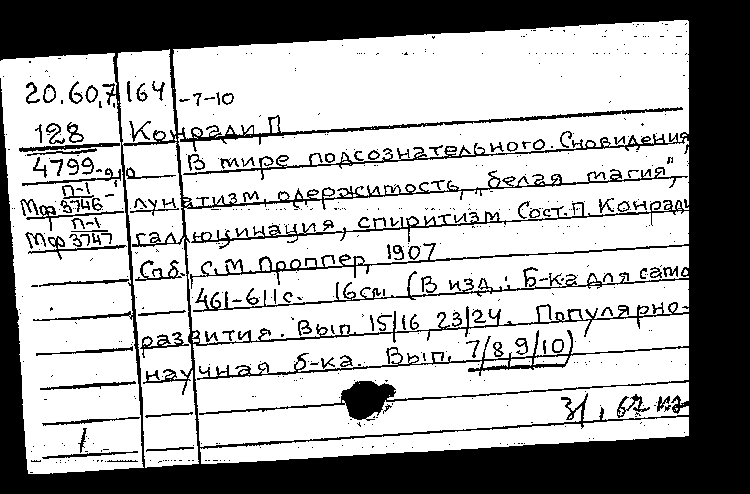 20.60.7 164 -7-10
128 Конради, П
4799-9,10 В мире подсознательного. Сновидения,
П-1
Мф 3746- лунатизм, одержимость, „белая магия",
П-1
Мф 3747 галлюцинация, спиритизм. Сост. П. Конради
Спб., С.М. Проппер, 1907
461-611с. 16см. (В изд.: Б-ка для само
развития. Вып. 15/16, 23/24. Популярно-
научная б-ка. Вып. 7/8, 9/10)
1